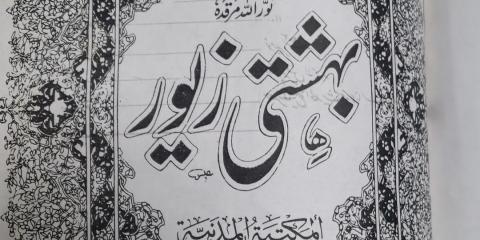 نور اللہ مرقدہ
بہشتی زیور
المکتبۃ المدنیۃ